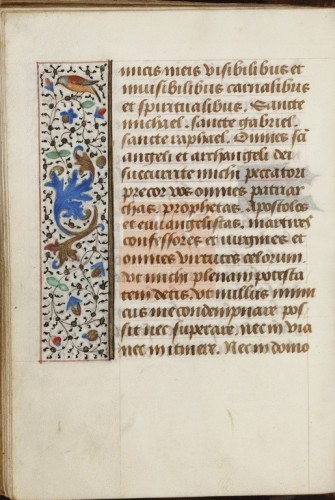 micis meis visibilibus et
inuisibilibus carnalibus
et spiritualibus. Sancte
michael. sancte gabriel.
sancte raphael. Omnes sc̄i
angeli et archangeli dei
succurrite michi peccatori
precor vos omnes patriar
chas. prophetas. apostolos
et euuangelistas. martires
confessores et uirgines et
omnes virtutes celorum.
vt michi plenam potesta
tem detis. vt nullus inimi
cus me condempnare pos
sit nec superare. nec in via
nec in itinere. Nec in domo